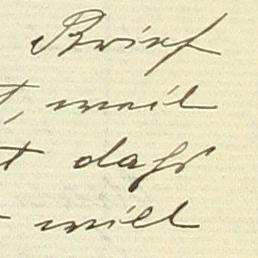 Brief
t, weil
t dahs
will